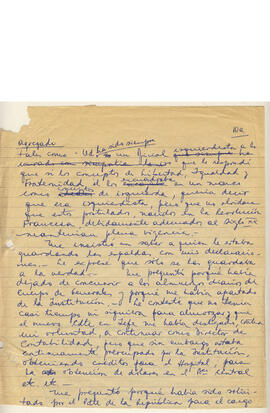 Agregado
ha sido siempre
tales como - Ud es un Fiscal izquierdista a lo
que le respondí
que si los conceptos de Libertad, Igualdad y
Fraternidad él los encuadraba en un marco
como de izquierda, quería decir
que era izquierdista, pero que no olvidara
que estos postulados, nacidos en la Revolución
Francesa, debidamente adecuados al Siglo XX
mantenían plena vigencia.-
Me insistió en saber a quien le estaba
guardando las espaldas, con mis declaracio-
nes.- Le expresé que sólo se las guardaba
a la verdad.- Me preguntó porqué había
dejado de concurrir a los almuerzos diarios del
Cuerpo de Generales, y porqué me había apartado
de la Institución - Le contesté que no tenía
casi tiempo ni siquiera para almorzar, pero que
el nuevo Cdte en Jefe me había destinado, contra
mi voluntad, a continuar como Director de
Contabilidad, pero que sin embargo estaba
continuamente preocupado por la Institución,
obteniendo créditos para el Hospital, para
la obtención de dólares en el Bco Central
etc. etc.-
Me preguntó porqué había sido solici-
tado por el Pdte de la República para el cargo